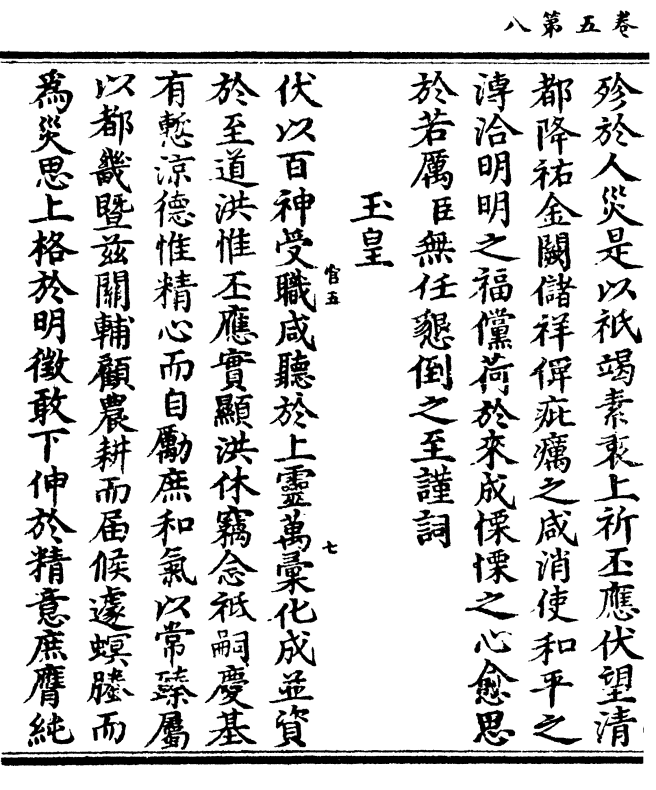 卷五第八
殄於人災是以祇竭素衷上祈丕應伏望清
都降祐金闕儲祥俾疵癘之咸消使和平之
溥洽明明之福儻荷於來成慄慄之心愈思
於若厲臣無任懇倒之至謹詞
玉皇
伏以百神受職咸聽於上靈萬彙化成並資
官五
七
於至道洪惟丕應實顯洪休竊念祗嗣慶基
有慙涼德惟精心而自勵庶和氣以常臻屬
以都畿曁茲關輔顧農耕而届候遽螟螣而
為災思上格於明徴敢下伸於精意庶膺純